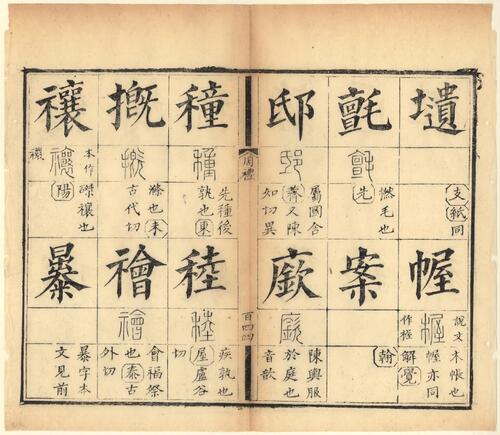 壝
支紙同
氈
撚毛也
先
邸
屬國舍
又陳
知切異
幄
說文木帳也
幄亦同
作楃解覺
案
翰
廞
陳輿服
於庭也
音歆
周禮
百四四
穜
先種後
孰也東
摡
滌也未
古代切
禳
本作磔禳也
陽
稑
疾孰也
屋盧谷
切
禬
會福祭
也泰古
外切
暴
暴字本
文見前